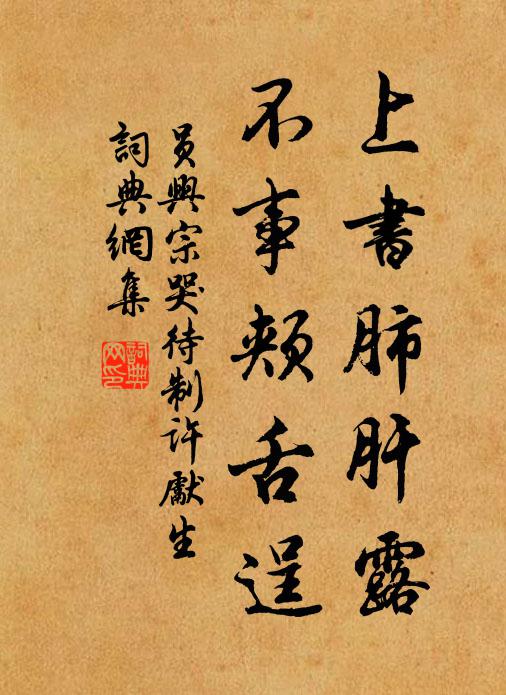 上書肺肝露
不事頰舌逞
員興宗哭待制許獻生
詞典網集
詞典網印